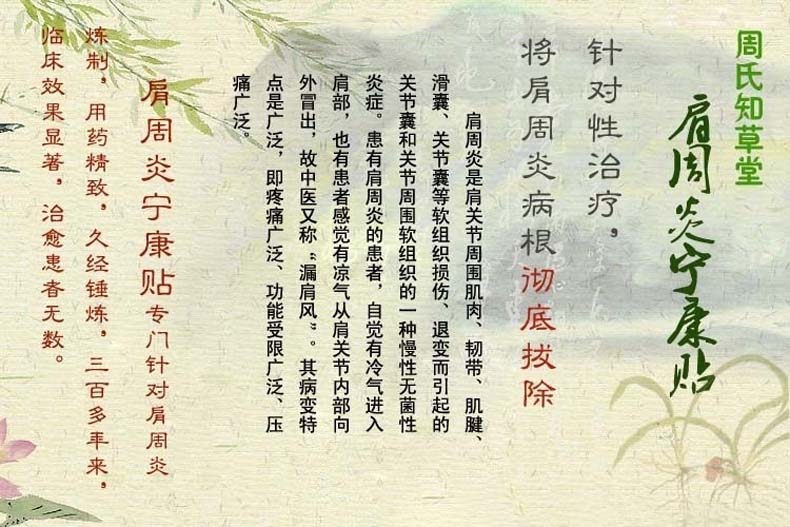 周氏知草堂
肩周炎宁康贴
针对性治疗，
将肩周炎病根彻底拔除
肩周炎是肩关节周围肌肉、韧带、肌腱、
滑囊、关节囊等软组织损伤、退变而引起的
关节囊和关节周围软组织的一种慢性无菌性
炎症。患有肩周炎的患者，自觉有冷气进入
肩部，也有患者感觉有凉气从肩关节内部向
外冒出，故中医又称“漏肩风”。其病变特
点是广泛，即疼痛广泛、功能受限广泛、压
痛广泛。
肩周炎宁康贴专门针对肩周炎
炼制，用药精致，久经锤炼，三百多年来，
临床效果显著，治愈患者无数。